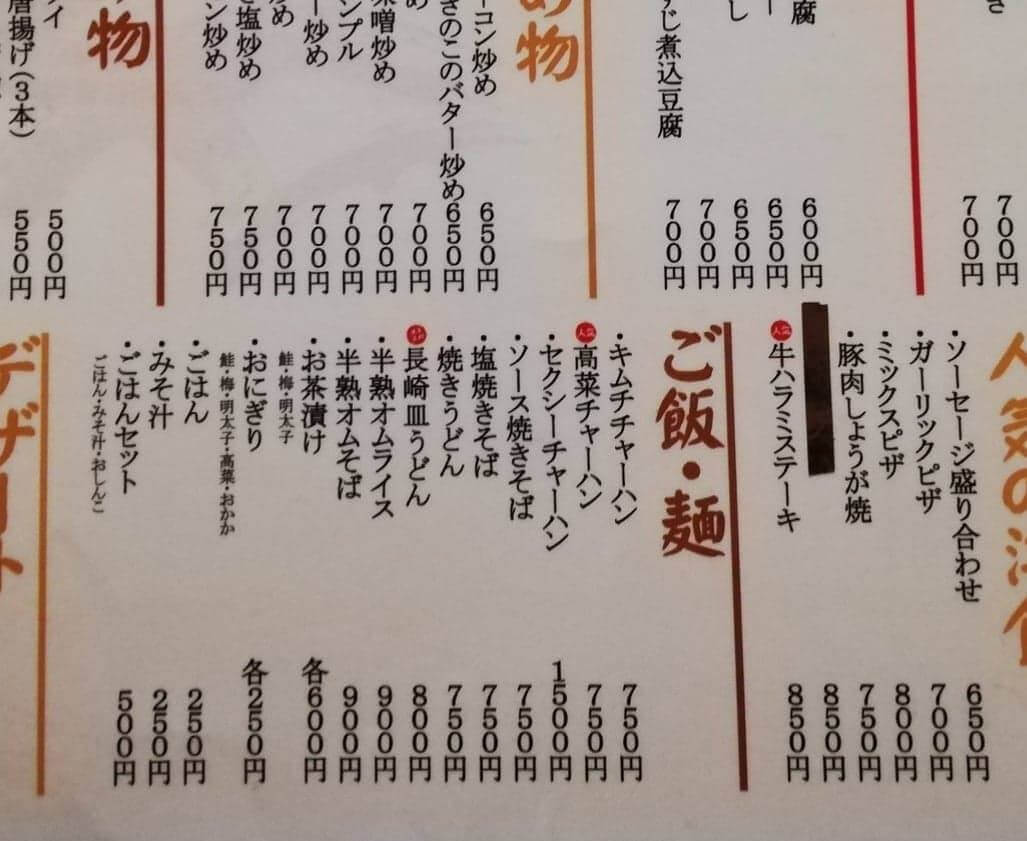 700円
700円
腐 600円
ー 650円
し 650円
700円
すじ煮込豆腐 700円
め物
コン炒め 650円
きのこのバター炒め 650円
め 700円
味噌炒め 700円
ンプル 700円
ー炒め 700円
め 700円
塩炒め 750円
ン炒め 750円
物
イ 500円
唐揚げ(3本) 550円
人気の洋食
・ソーセージ盛り合わせ 650円
・ガーリックピザ 700円
・ミックスピザ 800円
・豚肉しょうが焼 750円
850円
人気 牛ハラミステーキ 850円
ご飯・麺
・キムチチャーハン 750円
人気 高菜チャーハン 750円
・セクシーチャーハン 1500円
・ソース焼きそば 750円
・塩焼きそば 750円
・焼きうどん 750円
長崎皿うどん 800円
・半熟オムライス 900円
・半熟オムそば 900円
・お茶漬け 各600円
鮭・梅・明太子
・おにぎり 各250円
鮭・梅・明太子・高菜・おかか
・ごはん 250円
・みそ汁 250円
・ごはんセット 500円
ごはん・みそ汁・おしんこ
デザート